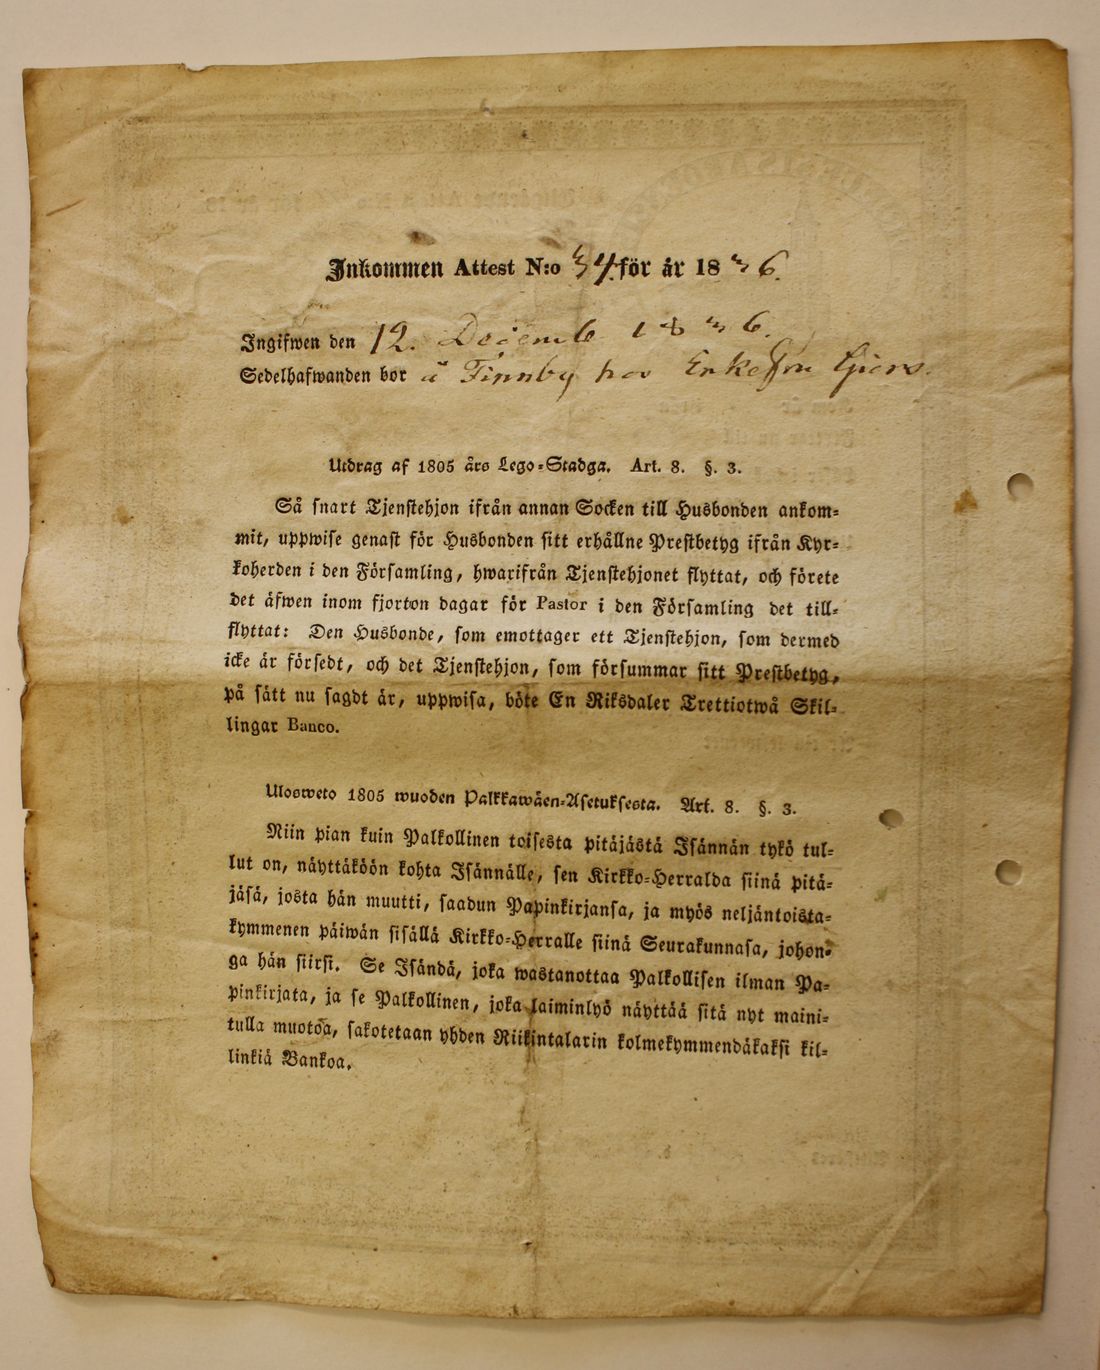 Inkommen Attest N:o 34 för år 1836.
Ingifwen den 12. Decemb 1836.
Sedelhafwanden bor å Finnby hos Enkefru Giers.
Utdrag af 1805 års Lego-Stadga. Art. 8. §. 3.
Så snart Tjenstehjon ifrån annan Socken till Husbonden ankom-
mit, uppwise genast för Husbonden sitt erhållne Prestbetyg ifrån Kyr-
koherden i den Församling, hwarifrån Tjenstehjonet flyttat, och förete
det äfwen inom fjorton dagar för Pastor i den Församling det till-
flyttat: Den Husbonde, som emottager ett Tjenstehjon, som dermed
icke är försedt, och det Tjenstehjon, som försummar sitt Prestbetyg,
på sätt nu sagdt är, uppwisa, böte En Riksdaler Trettiotwå Skil-
lingar Banco.
Ulosweto 1805 wuoden Palkkawäen-Asetuksesta. Art. 8. §. 3.
Niin pian kuin Palkollinen toisesta pitäjästä Isännän tykö tul-
lut on, näyttäköön kohta Isännälle, sen Kirkko-Herralda siinä pitä-
jäsä, josta hän muutti, saadun Papinkirjansa, ja myös neljäntoista-
kymmenen päiwän sisällä Kirkko-Herralle siinä Seurakunnasa, johon-
ga hän siirsi. Se Isändä, joka wastanottaa Palkollisen ilman Pa-
pinkirjata, ja se Palkollinen, joka laiminlyö näyttää sitä nyt maini-
tulla muotoa, sakotetaan yhden Riikintalarin kolmekymmendäkaksi kil-
linkiä Bankoa.